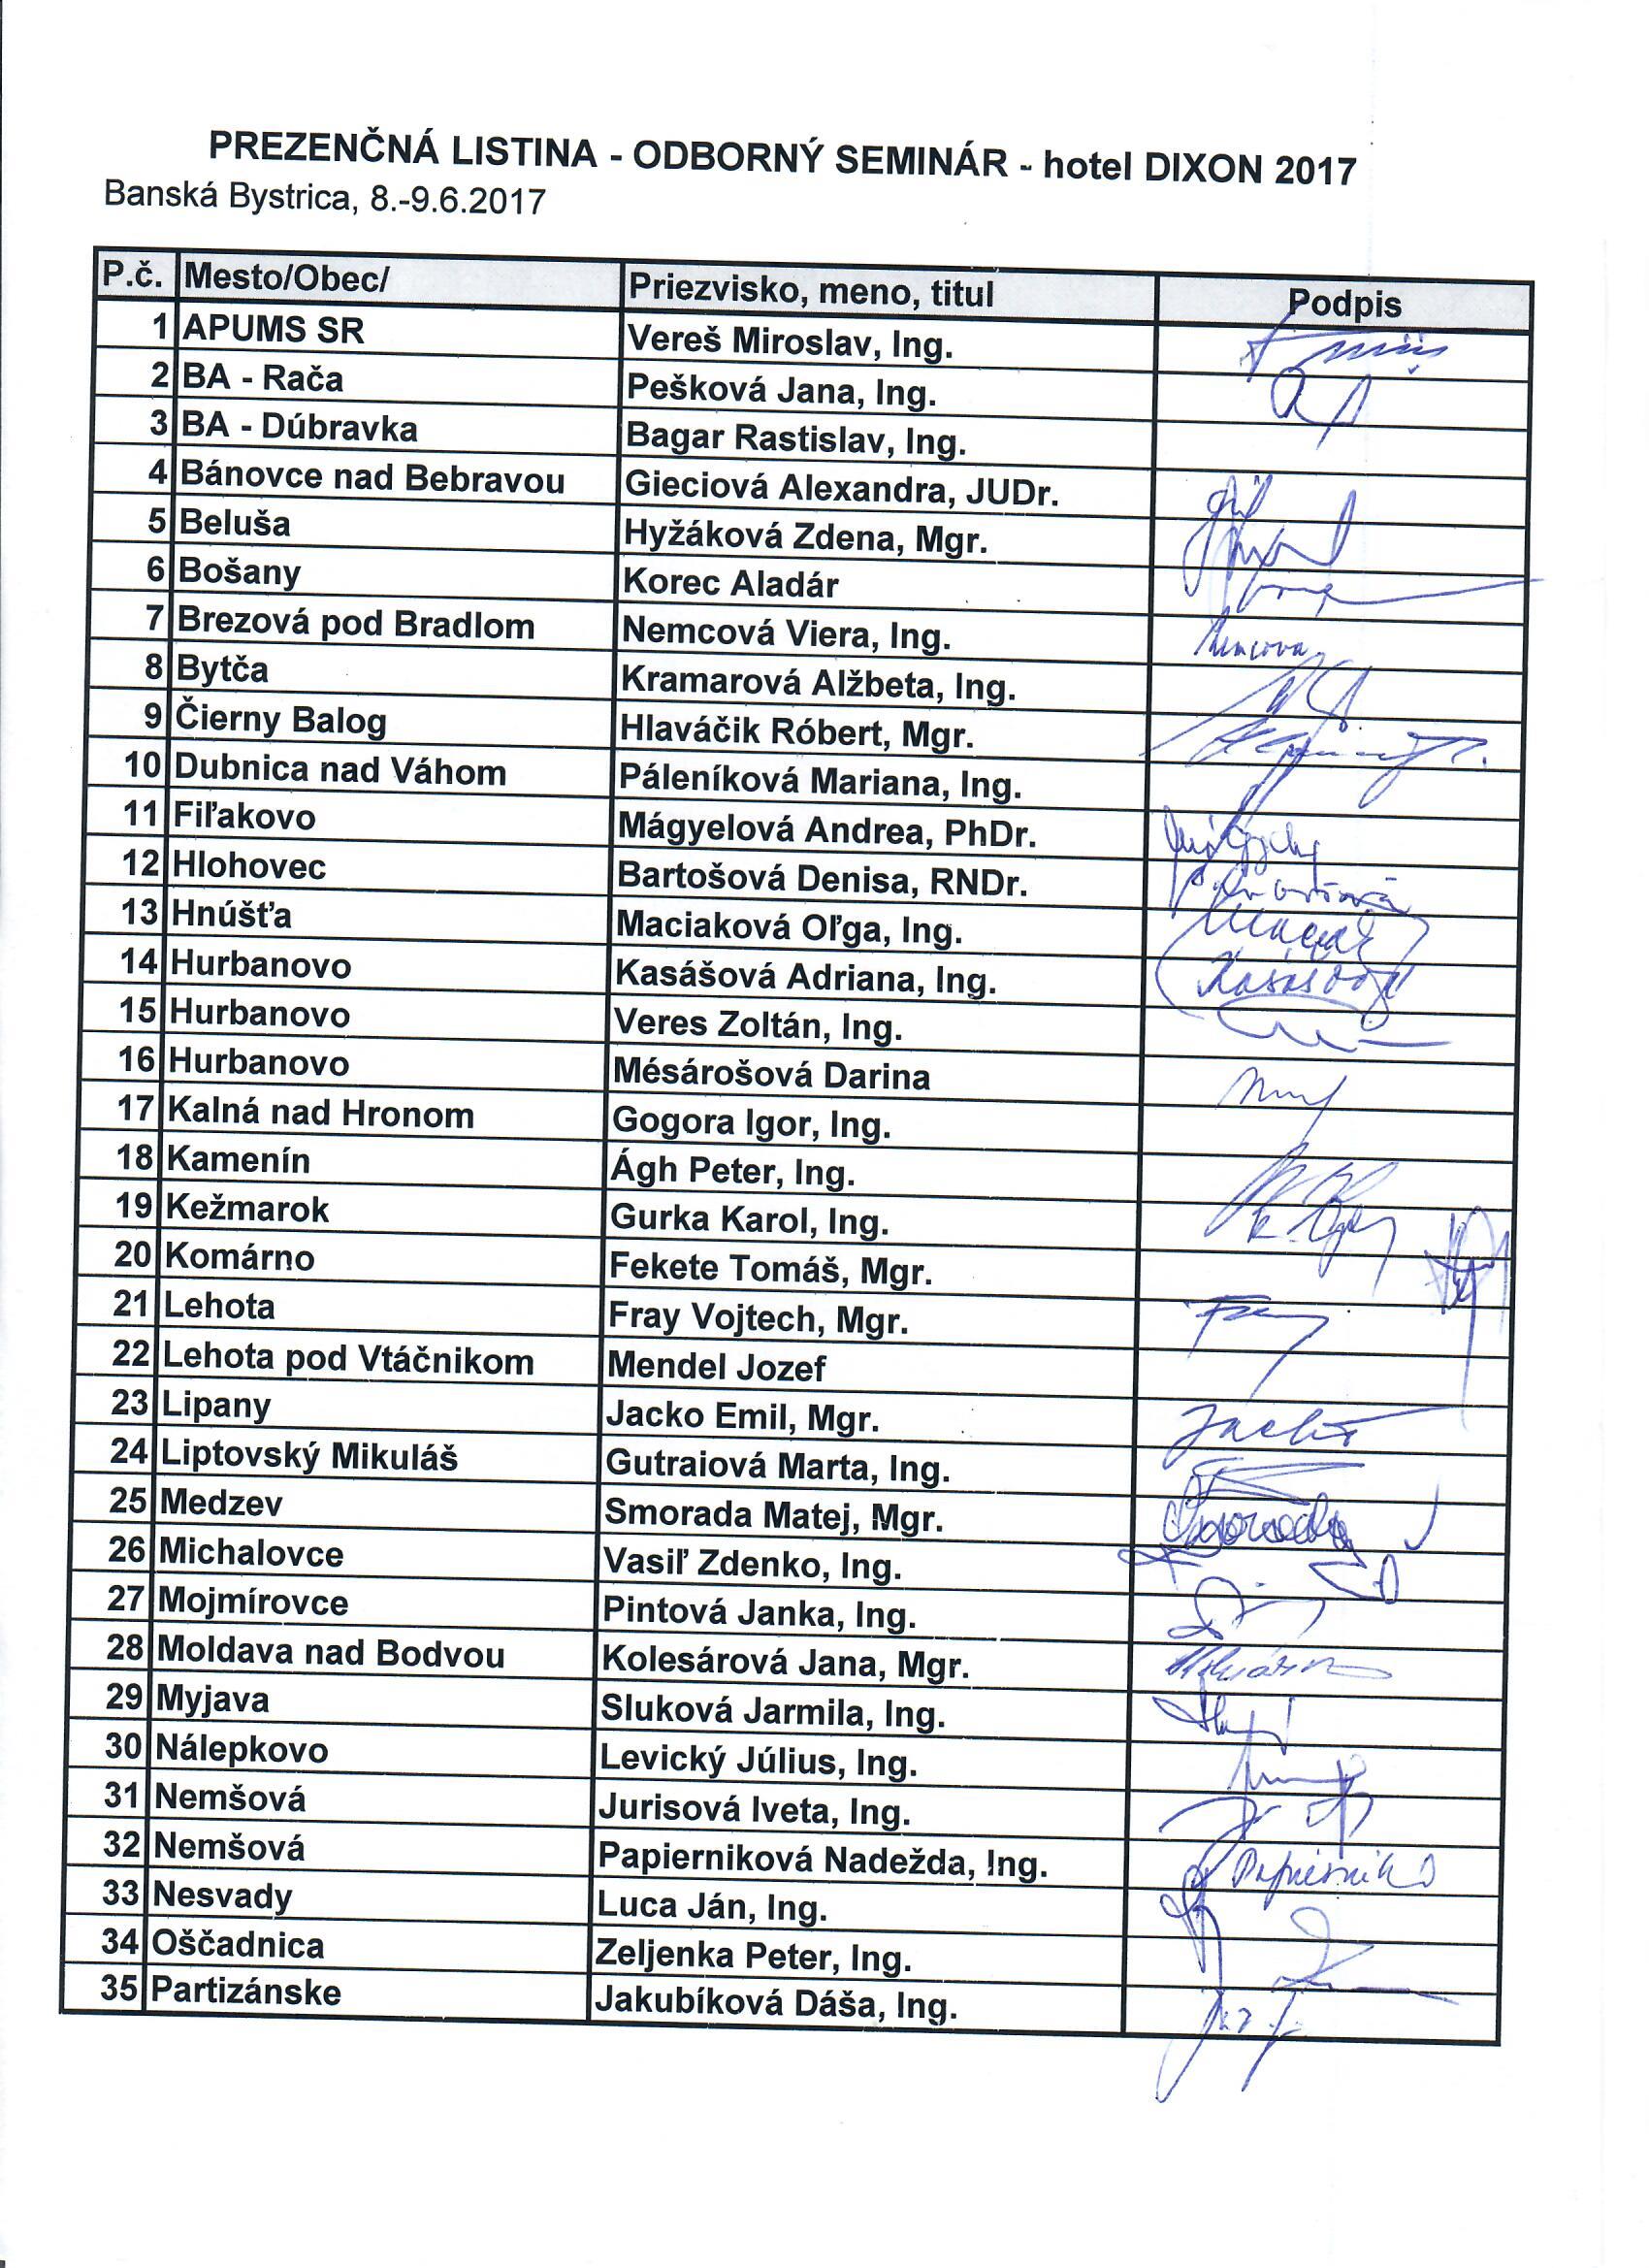 PREZENČNÁ LISTINA - ODBORNÝ SEMINÁR - hotel DIXON 2017
Banská Bystrica, 8.-9.6.2017
P.č. Mesto/Obec/ Priezvisko, meno, titul Podpis
1 APUMS SR Vereš Miroslav, Ing.
2 BA - Rača Pešková Jana, Ing.
3 BA - Dúbravka Bagar Rastislav, Ing.
4 Bánovce nad Bebravou Gieciová Alexandra, JUDr.
5 Beluša Hyžáková Zdena, Mgr.
6 Bošany Korec Aladár
7 Brezová pod Bradlom Nemcová Viera, Ing.
8 Bytča Kramarová Alžbeta, Ing.
9 Čierny Balog Hlaváčik Róbert, Mgr.
10 Dubnica nad Váhom Páleníková Mariana, Ing.
11 Fiľakovo Mágyelová Andrea, PhDr.
12 Hlohovec Bartošová Denisa, RNDr.
13 Hnúšťa Maciaková Oľga, Ing.
14 Hurbanovo Kasášová Adriana, Ing.
15 Hurbanovo Veres Zoltán, Ing.
16 Hurbanovo Mésárošová Darina
17 Kalná nad Hronom Gogora Igor, Ing.
18 Kamenín Ágh Peter, Ing.
19 Kežmarok Gurka Karol, Ing.
20 Komárno Fekete Tomáš, Mgr.
21 Lehota Fray Vojtech, Mgr.
22 Lehota pod Vtáčnikom Mendel Jozef
23 Lipany Jacko Emil, Mgr.
24 Liptovský Mikuláš Gutraiová Marta, Ing.
25 Medzev Smorada Matej, Mgr.
26 Michalovce Vasiľ Zdenko, Ing.
27 Mojmírovce Pintová Janka, Ing.
28 Moldava nad Bodvou Kolesárová Jana, Mgr.
29 Myjava Sluková Jarmila, Ing.
30 Nálepkovo Levický Július, Ing.
31 Nemšová Jurisová Iveta, Ing.
32 Nemšová Papierniková Nadežda, Ing.
33 Nesvady Luca Ján, Ing.
34 Oščadnica Zeljenka Peter, Ing.
35 Partizánske Jakubíková Dáša, Ing.